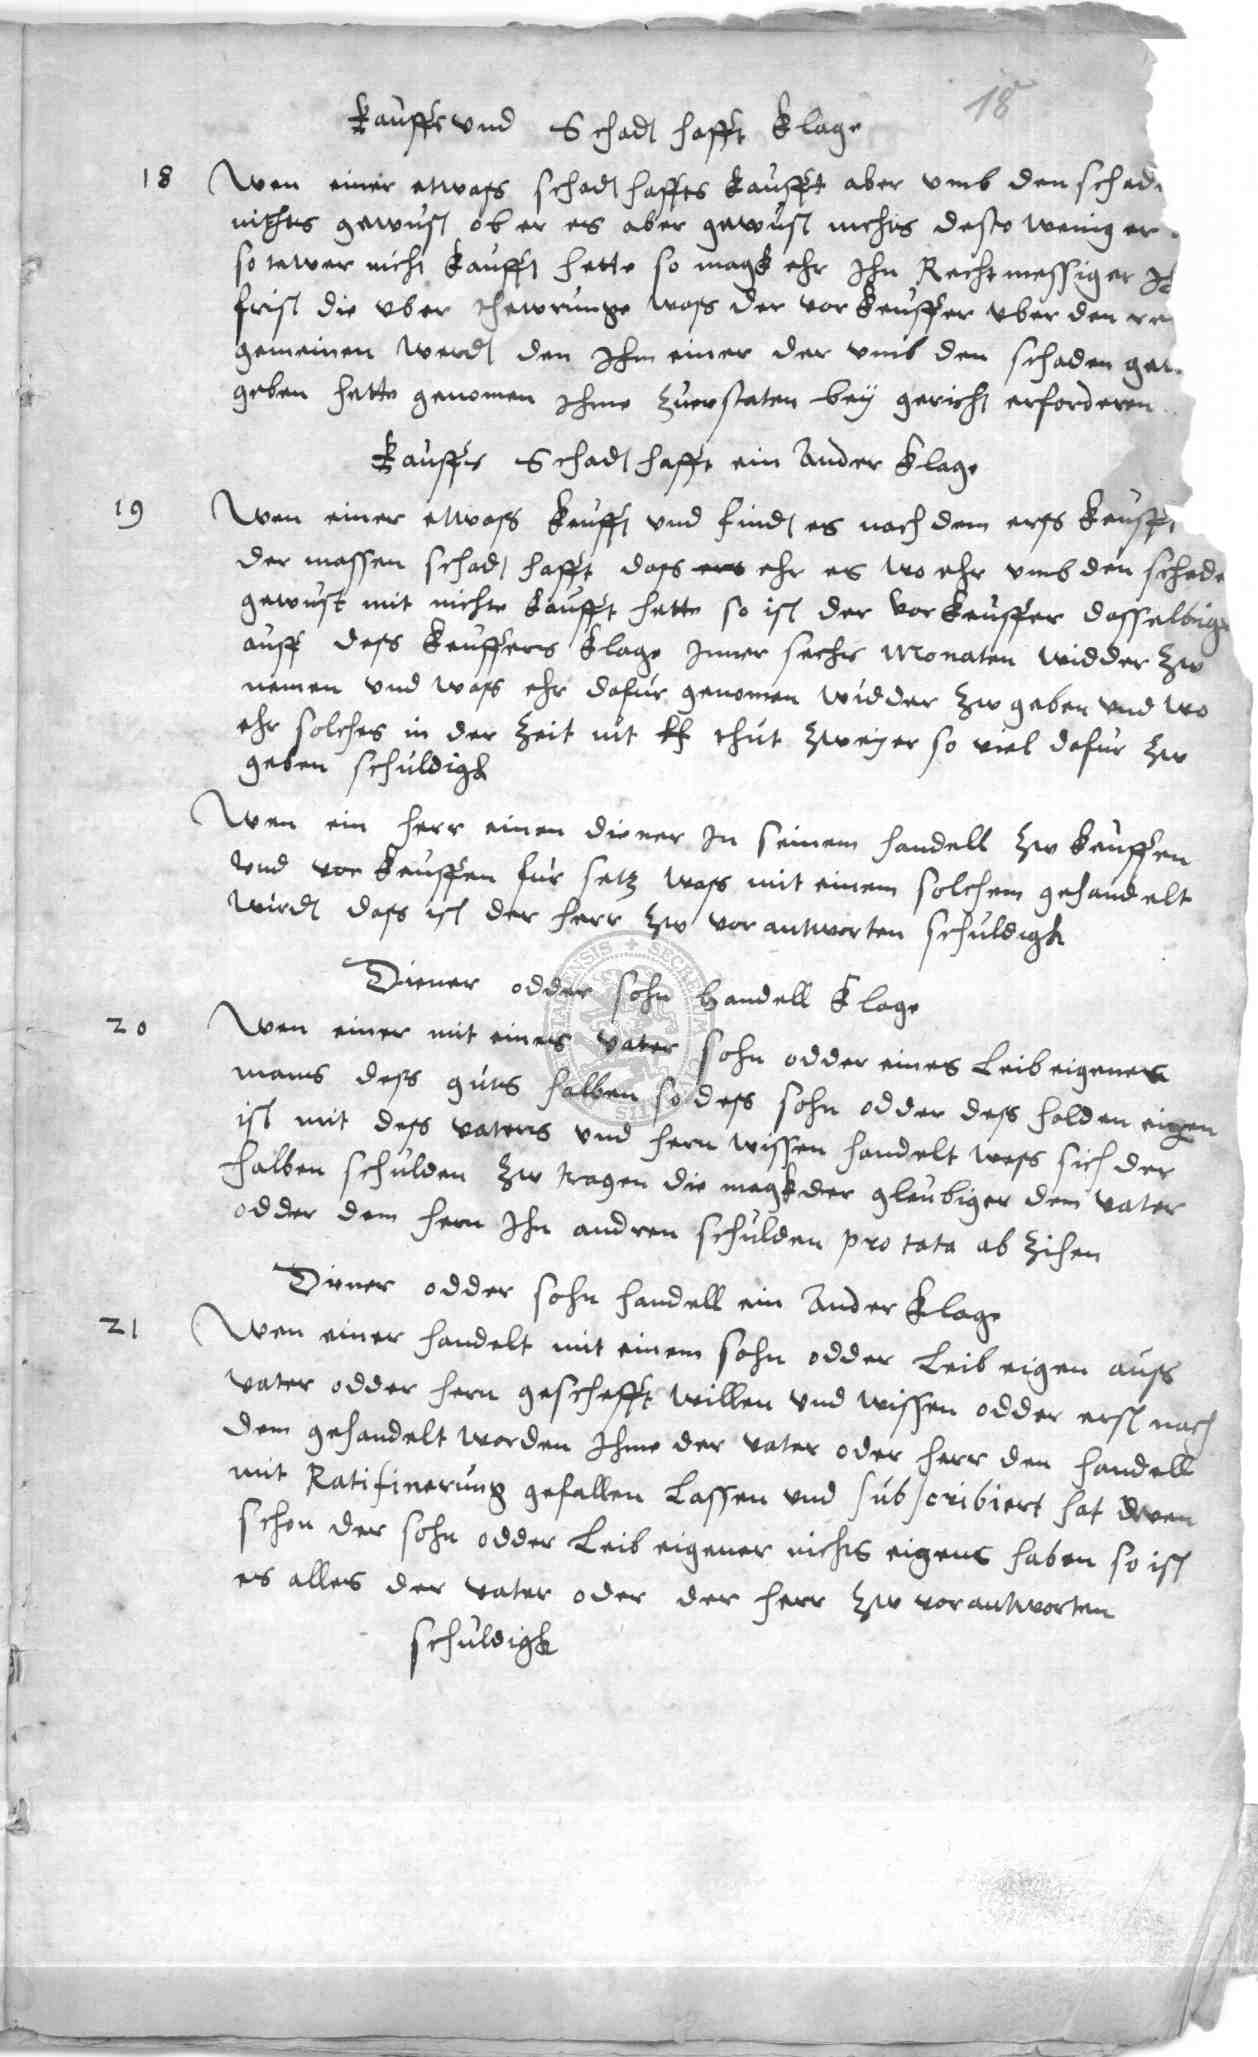 18
Kauffs vnd Schadthafft Klage
18 Wen einer etwass schadthafftes kaufft aber vmb den schade
nichts gewust ob er es aber gewust nichts desto weniger
so tewer nicht kaufft hette so magk ehr Ihn Rechtmessiger
frist die vber thewrunge wass der vorkeuffer vber den
gemeinen werdt den Ihm einer der vmb den schaden
geben hette genomen Ihme zuerstaten bey gericht erforderen
Kauffs Schadthafft ein Ander Klage
19 Wen einer etwass keufft vnd findt es nach dem erss keufft
der massen schadthafft dass ers ehr es wo ehr vmb den schade
gewust mit nichte kaufft hette so ist der vorkeuffer dasselbige
auff dess keuffers klage Inner sechs Monaten widder zw
nemen vnd wass ehr dafur genomen widder zw geben vnd wo
ehr solches in der zeit nit thut zweyer so viel dafur zw
geben schuldigk
Wen ein herr einen diener In seinem handell zw keuffen
vnd vorkeuffen fur setz wass mit einem solchem gehandelt
wirdt dass ist der herr zw vorantworten schuldigk
Diener odder sohn handell Klage
20 Wen einer mit eines vater sohn odder eines Leibeigenes
mans dess guts halben so dess sohn odder dess holden eigen
ist mit dess vaters vnd hern wissen handelt wess sich der
halben schulden zw tragen die magk der gleubiger dem vater
odder dem hern Ihn andren schulden pro tata ab zihen
Diener odder sohn handell ein Ander Klage
21 Wen einer handelt mit einem sohn odder Leibeigen auss
vater odder hern geschefft willen vnd wissen odder erst nach
dem gehandelt worden Ihme der vater oder herr den handell
mit Ratifinerung gefallen Lassen vnd subscribiert hat wen
schon der sohn odder Leibeigener nichts eigens haben so ist
es alles der vater oder der herr zw vorantworten
schuldigk